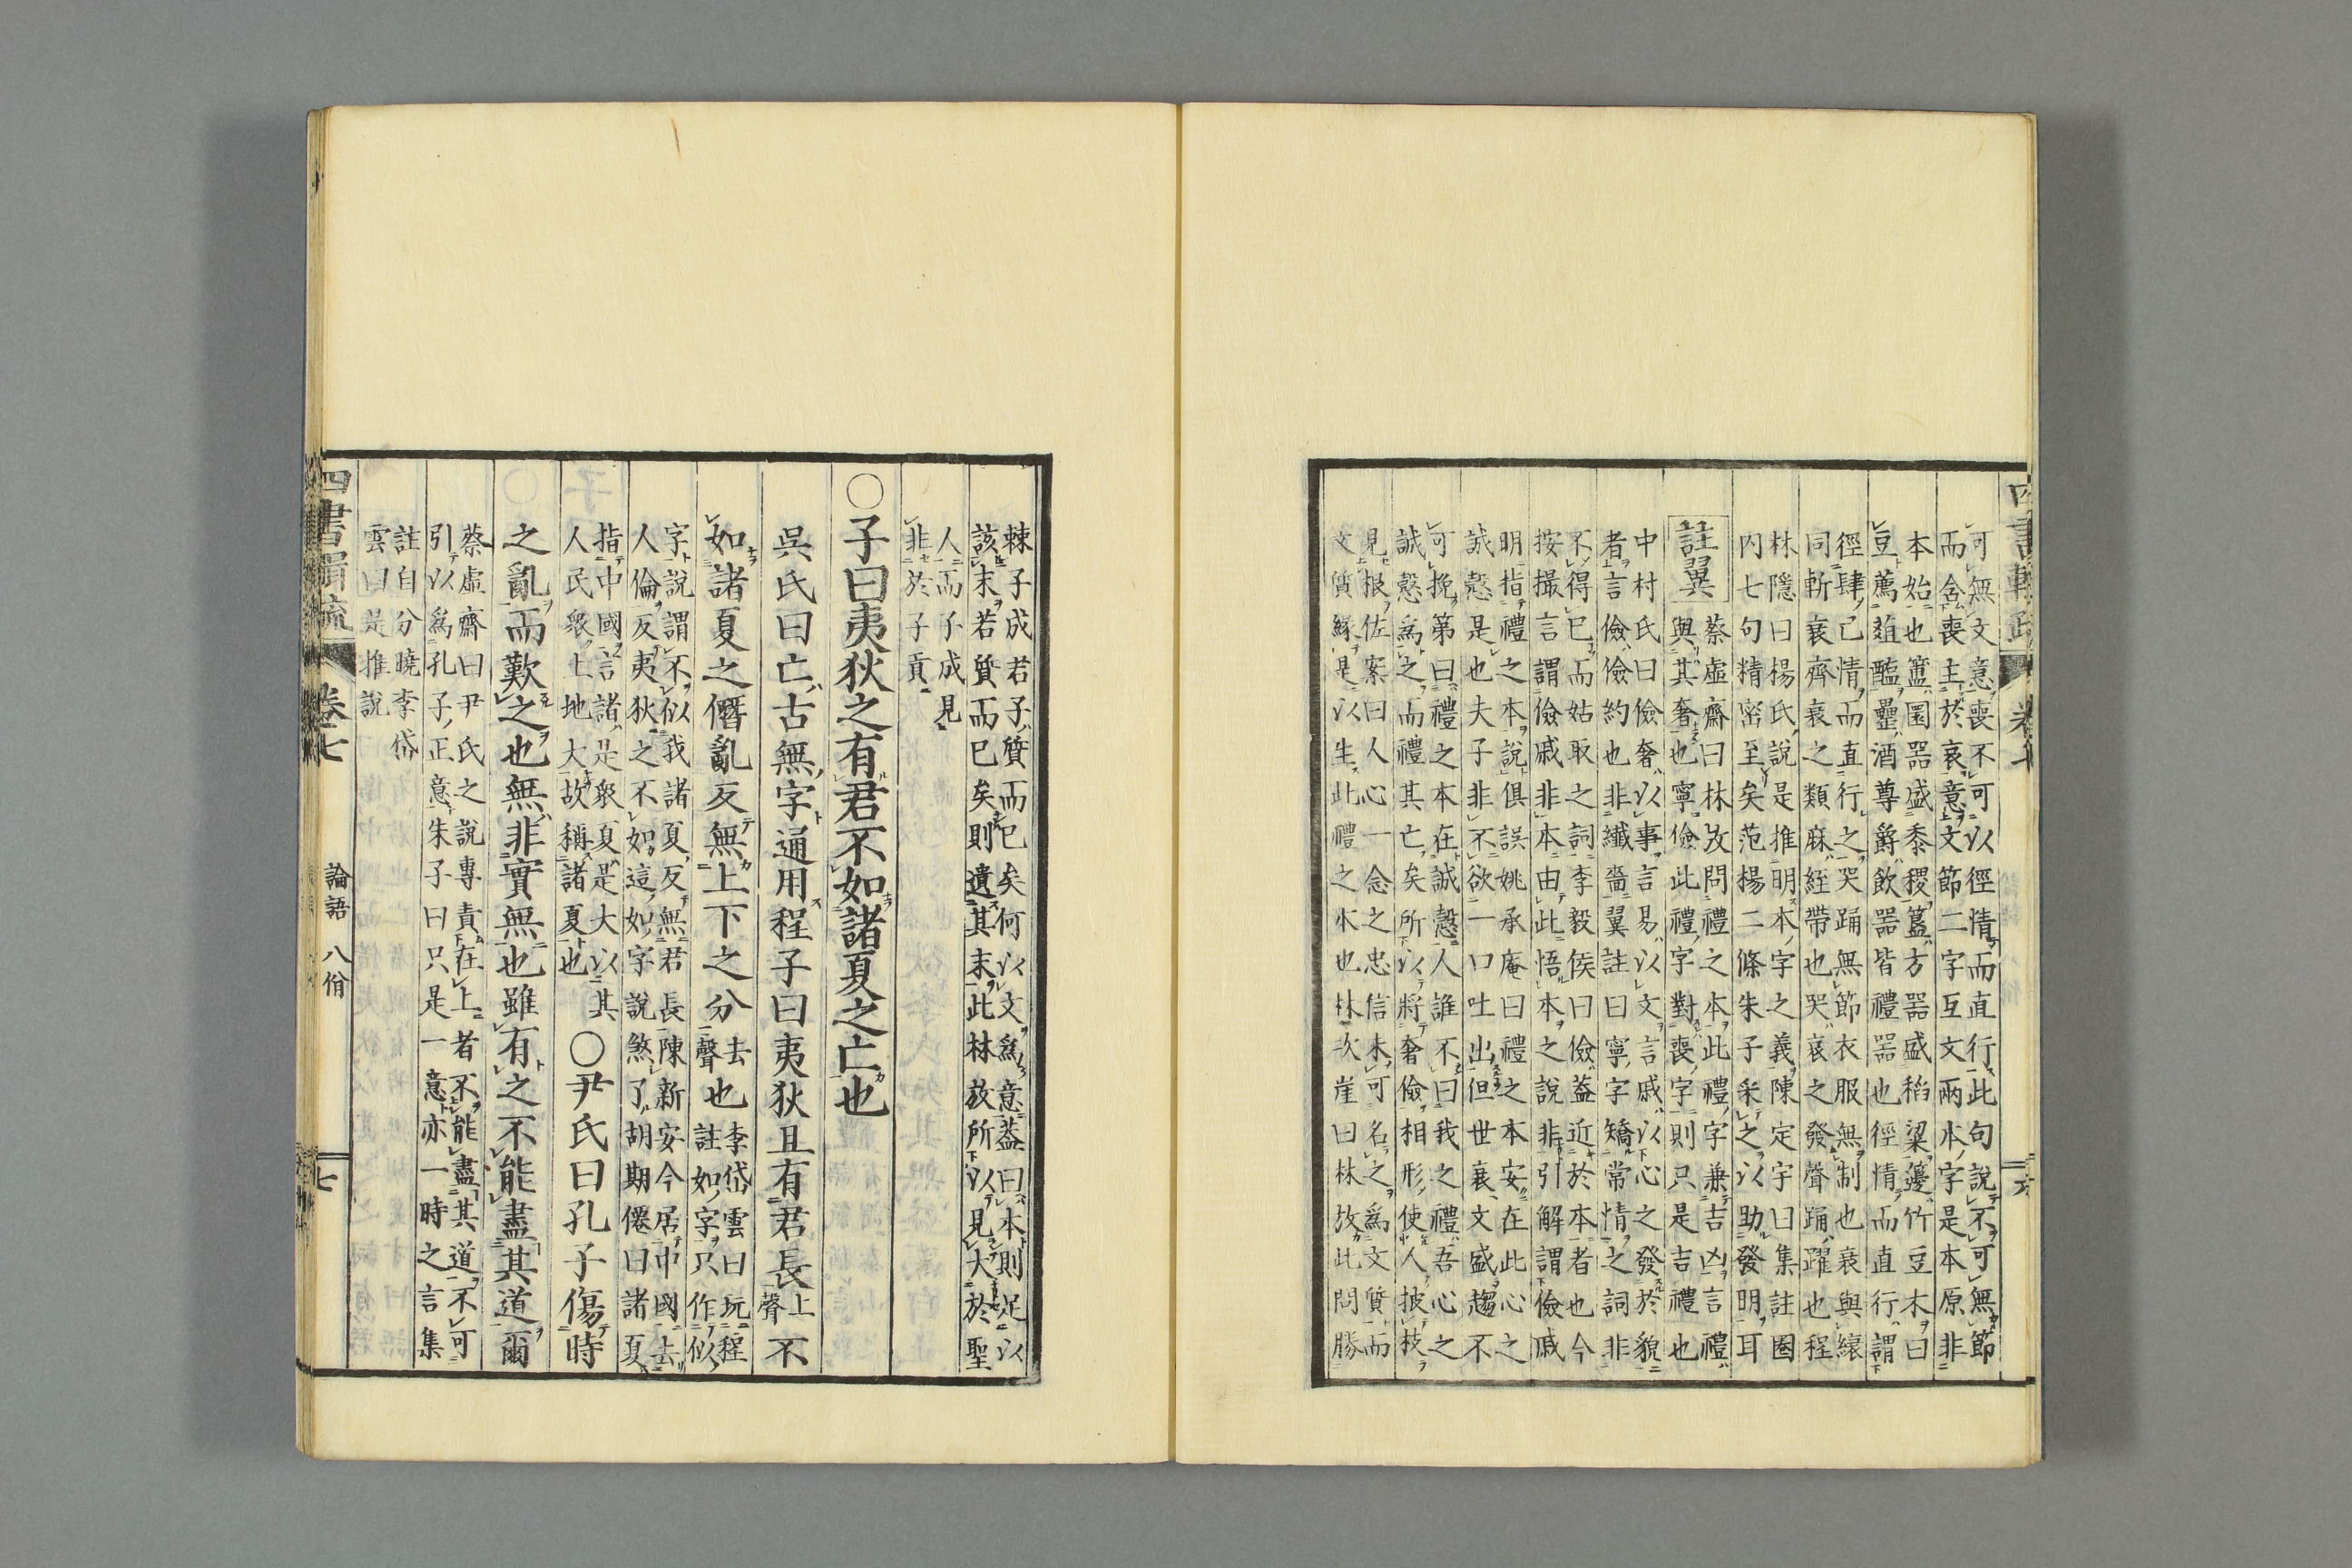 可無文意喪不可以徑情而直行此句說不可無節
而舍喪主於哀意文節二字互文兩本字是本原非
本始也簠圓器盛黍稷簋方器盛稻粱籩竹豆木曰
豆薦葅醢罍酒尊爵飲器皆禮器也徑情而直行謂
徑肆己情而直行之哭踊無節衣服無制也衰與縗
同斬衰齊衰之類麻絰帶也哭哀之發聲踊躍也程
林隱曰楊氏說是推明本字之義陳定宇曰集註圈
內七句精密至矣范楊二條朱子采之以助發明耳
註翼
蔡虛齋曰林放問禮之本此禮字兼吉凶言禮
與其奢也寧儉此禮字對喪字則只是吉禮也
中村氏曰儉奢以事言易以文言戚以心之發於貌
者言儉儉約也非纖嗇翼註曰寧字矯常情之詞非
不得已而姑取之詞李毅侯曰儉葢近於本者也今
按撮言謂儉戚非本由此悟本之說非引解謂儉戚
明指禮之本說俱誤姚承庵曰禮之本安在此心之
誠慤是也夫子非不欲一口吐出但世衰文盛趨不
可挽第曰禮之本在誠慤人誰不曰我之禮吾心之
誠慤爲之而禮其亡矣所以將奢儉相形使人披枝
見根佐案曰人心一念之忠信未可名之爲文質而
文質緣是以生此禮之本也林次崖曰林放此問勝
棘子成君子質而已矣何以文爲意葢曰本則足以
該末若質而已矣則遺其末此林放所以見大於聖
人而子成見
非於子貢
〇子曰夷狄之有君不如諸夏之亡也
吳氏曰亡古無字通用程子曰夷狄且有君長上聲不
如諸夏之僭亂反無上下之分去聲也
李岱雲曰玩程
註如字只作似
字說謂不似我諸夏反無君長陳新安今居中國去
人倫反夷狄之不如這如字說煞了胡期僊曰諸夏
指中國言諸是衆夏是大以其
人民衆土地大故稱諸夏也
〇尹氏曰孔子傷時
之亂而歎之也無非實無也雖有之不能盡其道爾
蔡虛齋曰尹氏之說專責在上者不能盡其道不可
引以爲孔子正意朱子曰只是一意亦一時之言集
註自分曉李岱
雲曰是推說
卷七
論語 八佾
七